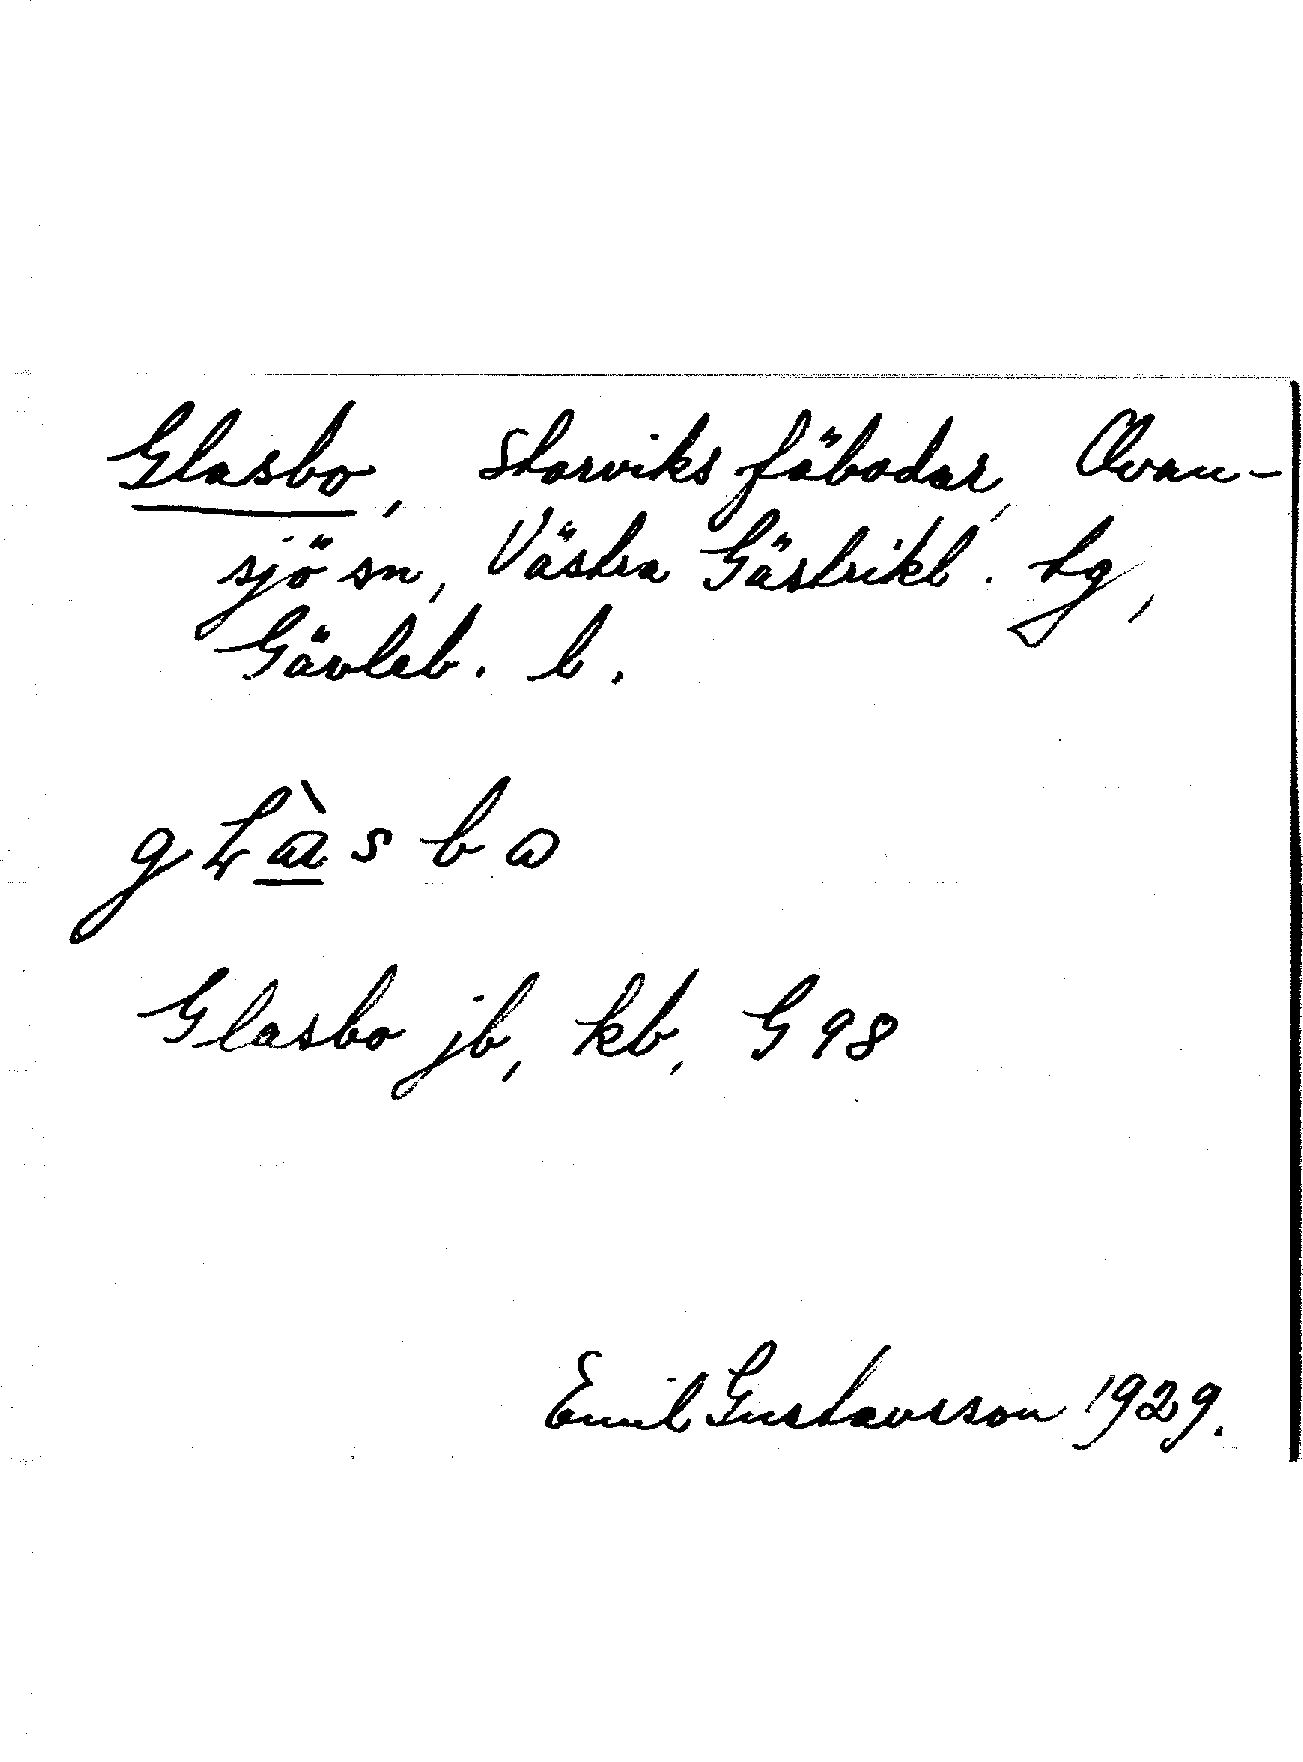 Glasbo, Storviks fäbodar, Ovan-
sjö sn, Västra Gästrikl. tg,
Gävleb. l.
gʟàsbo
Glasbo jb, kb, G98
Emil Gustavsson 1929.